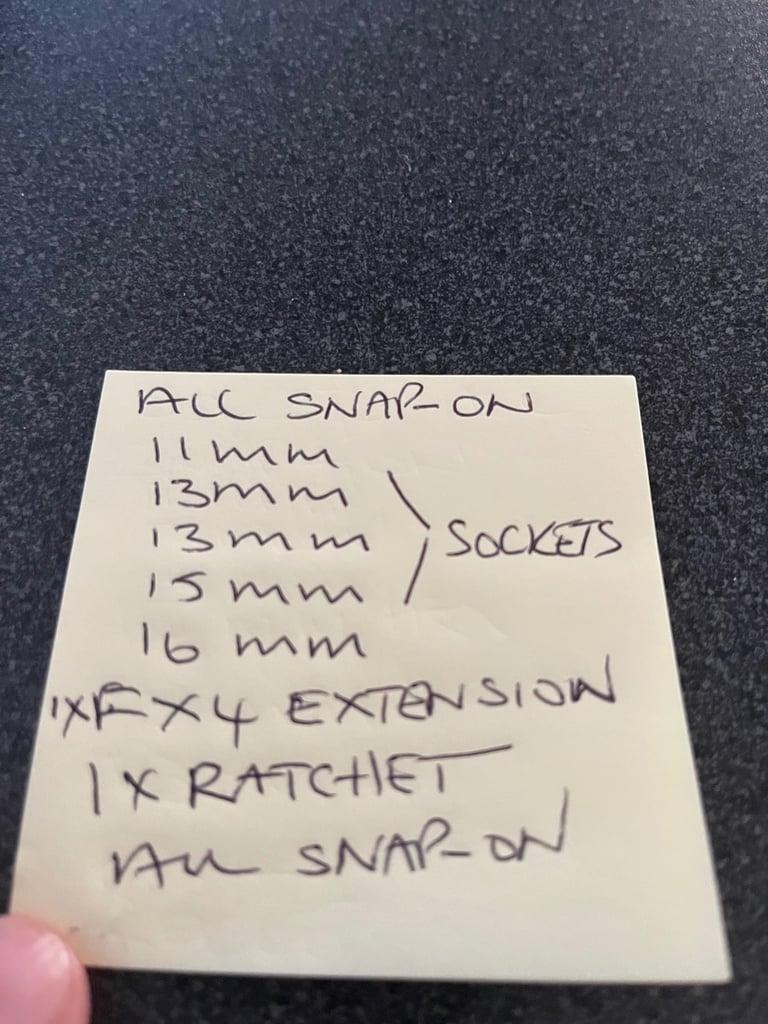 ALL SNAP-ON
11mm
13mm
13mm
15mm
16mm
SOCKETS
1XFX4 EXTENSION
1X RATCHET
ALL SNAP-ON